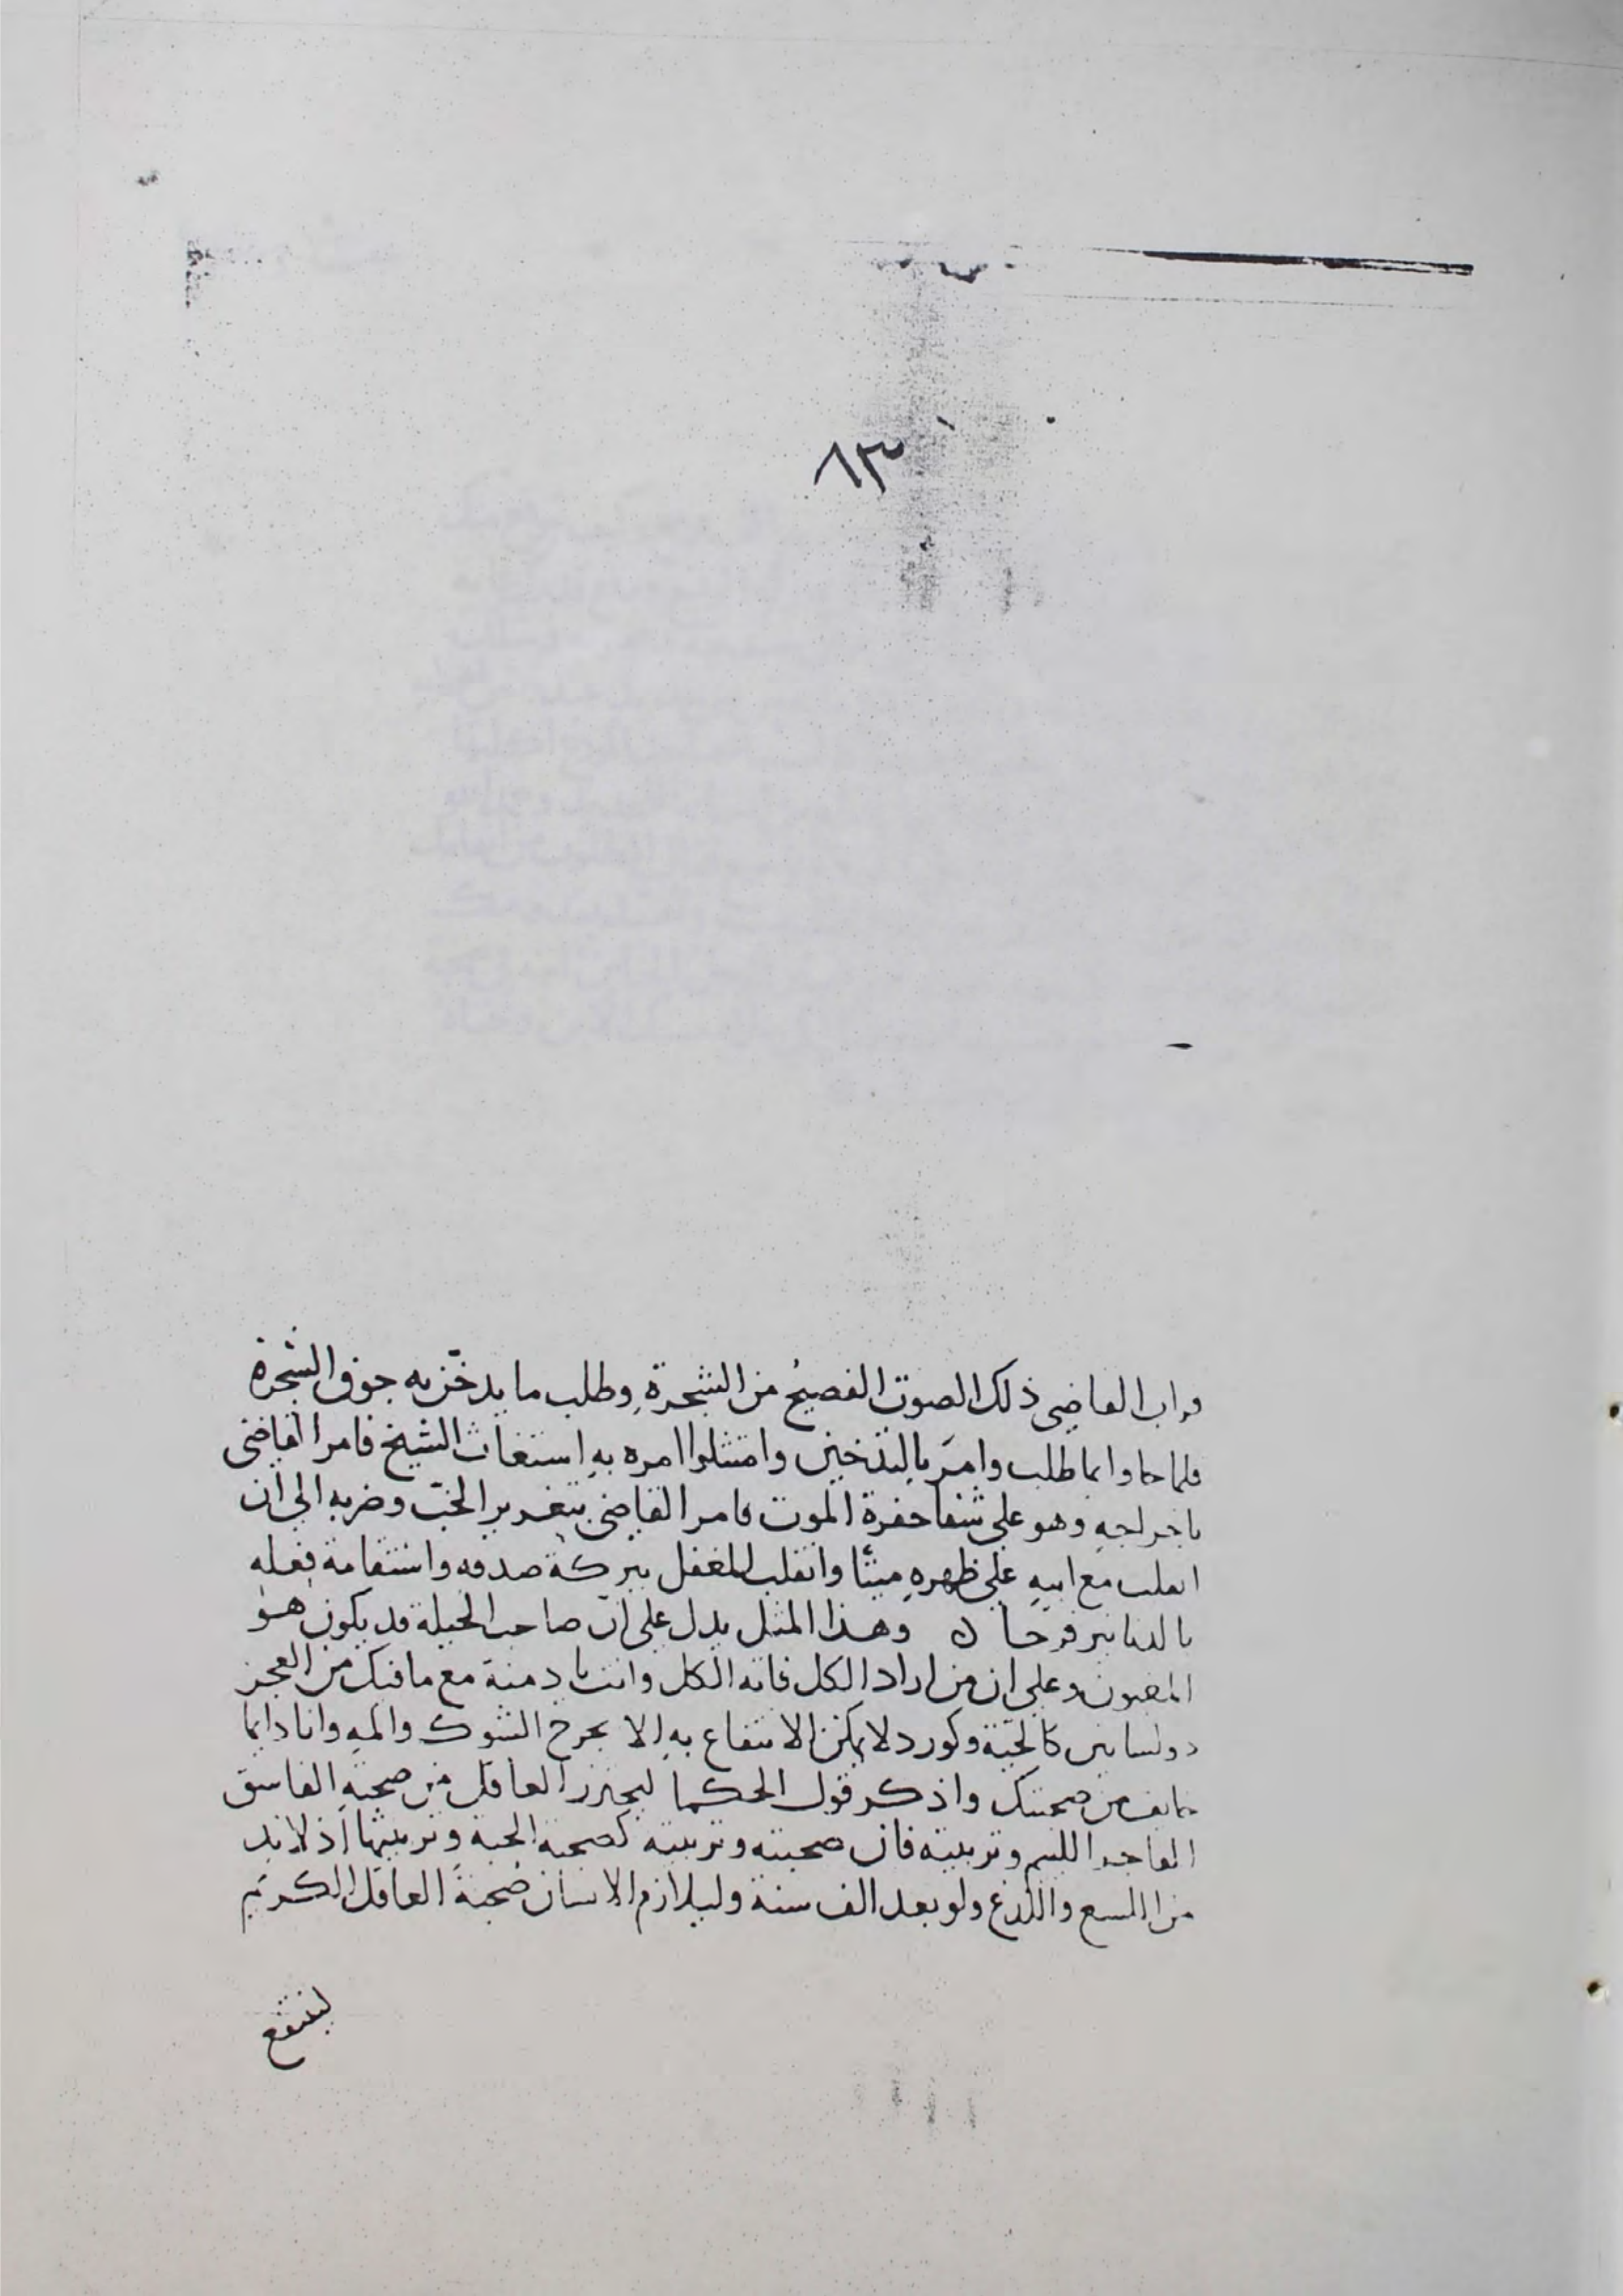 ٨٣
فراب القاضي ذلك الصوت الفصيحُ من الشجرةِ وطلب ما يدخّن به جوف الشجرة
فلما جاوا بما طلب وامَر بالتدخين وامتثلوا امره بهِ استغاث الشيخ فامر القاضي
باخراجهِ وهو على شفا حفرة الموت فامر القاضي بتغرير الخبّ وضربه الى ان
انقلب مع ابيهِ على ظهرهِ ميتًا وانقلب المغفل ببركة صدقه واستقامة فعله
بالدنانير فرحان وهذا المثل يدل على انّ صاحب الحيلة قد يكون هو
المغبون وعلى ان من اراد الكل فاته الكل وانت يا دمنة مع ما فيك من العجز
ذو لسانين كالحيّة وكورد لا يمكن الانتفاع بهِ الا بجرح الشوك والمهِ وانا دايما
خايف من صحبتك واذكر قول الحكما ليحترز العاقل من صحبةِ الفاسق
الفاجر اللييم وتربيته فان صحبته وتربيته كصحبة الحية وتربيتها اذ لا بد
من اللسع واللدغ ولو بعد الف سنة وليلازم الانسان صحبةَ العاقل الكريم
لينتفع